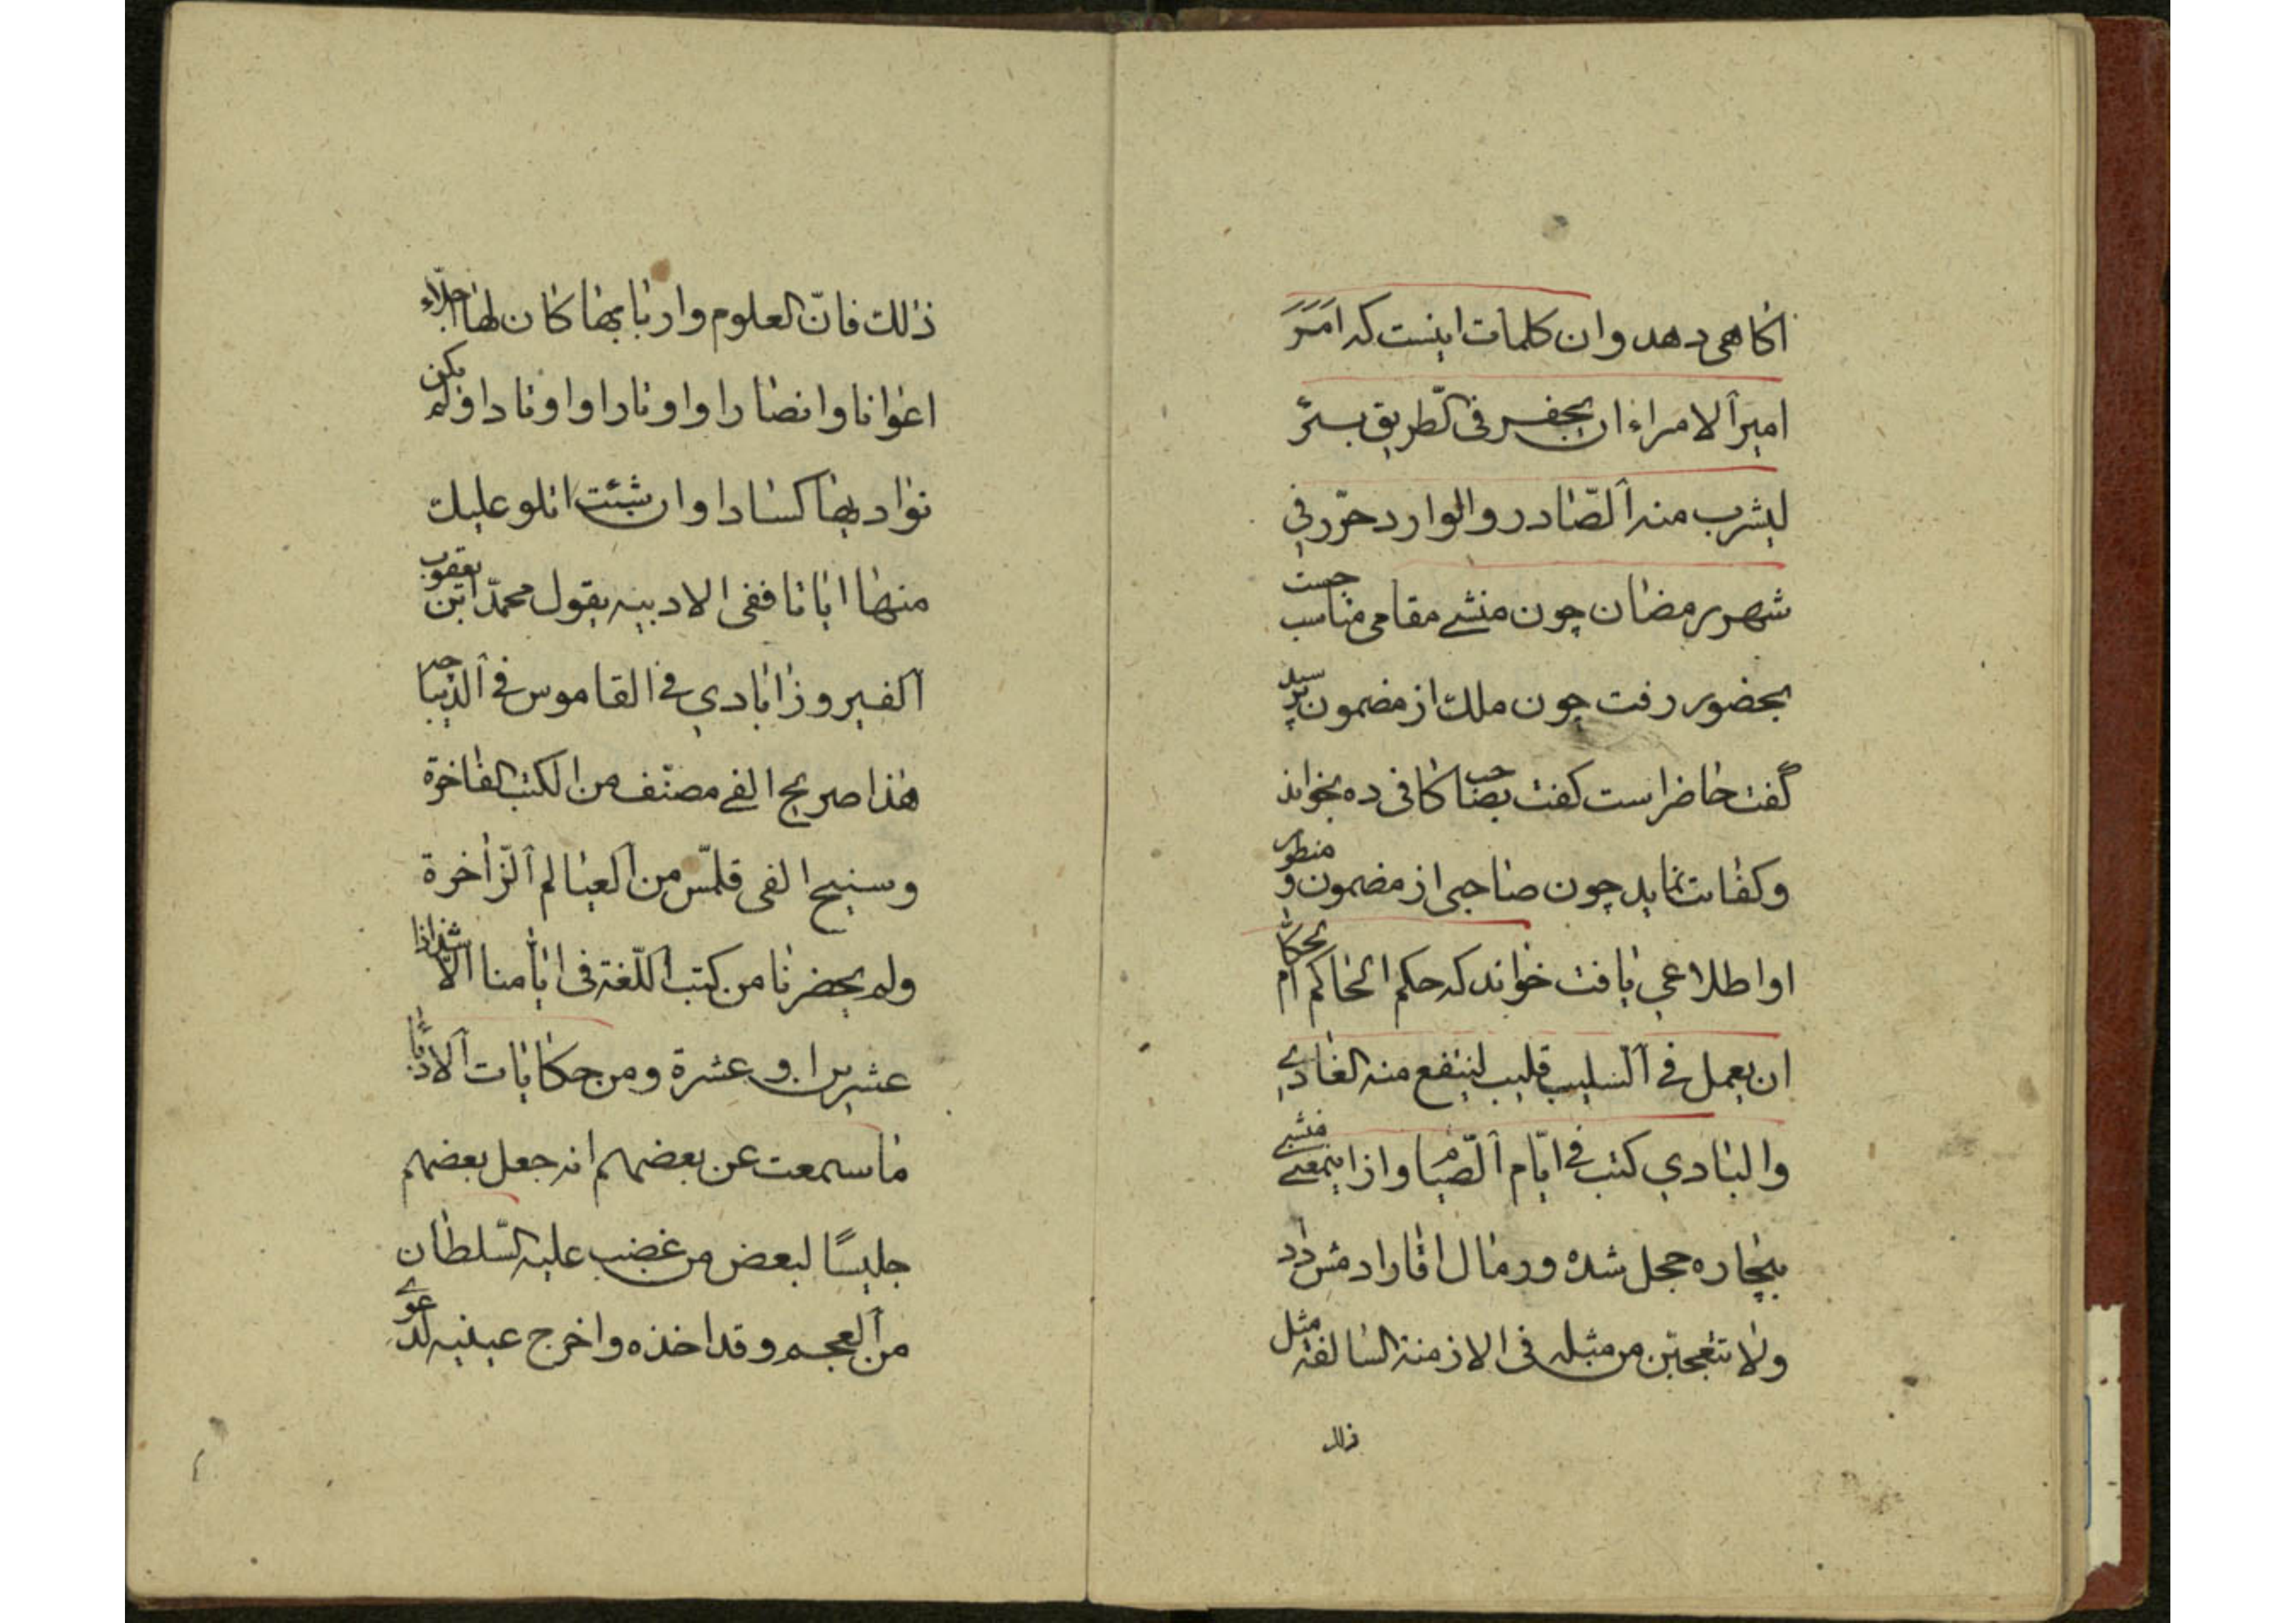 اکاهی دهد وان کلمات اینست که امَرَ
امیرُ الامراء ان یحفر فی الطریق بئرٌ
لیشرب منه الصّادر والوارد حرّر فی
شهر رمضان چون منشے مقامی مناسب جست
بحضور رفت چون ملك از مضمون پرسید
گفت حاضر است کفت بصاحب کافی ده بخواند
وکفایت نماید چون صاحبی از مضمون و منطوق
او اطلاعی یافت خواند که حکم الحاکم الحکام
ان یعمل فی السلیب قلیب لینتفع منه الغادی
والبادی کتب فی ایّام الصّیام واز اینمعنے منشے
بیچاره خجل شده ورمال اقا را دمش داد
ولا تتعجبّن من مثله فی الازمنة السالفة مثل
ذلك
ذلك فانّ العلوم واربابها کان لها اجلّاء
اعوانا وانصارا واوتارا واوتادا ولم یکن
نوادیها کسادا وان شئت اتلو علیك
منها ایاتا ففی الادبیه یقول محمّد ابن یعقوب
الفیروزابادی فی القاموس فی الدیباجه
هذا صریح الفی مصنّف من الکتب الفاخرة
وسنیح الفی قلمّس من العیالم الزّاخرة
ولم یحضرنا من کتب اللّغة فی ایّامنا الّا شذ اذا
عشرین او عشرة ومن حکایات الادباء
ما سمعت عن بعضهم انه جعل بعضهم
جلیسًا لبعض من غضب علیه السّلطان
من العجم وقد اخذه واخرج عینیه لدعوی